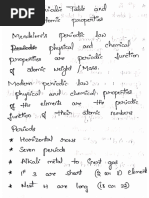 Periodic Table and
atomic properties
Mendeleev's periodic law
physical and chemical
properties are periodic function
of atomic weight / Mass
Modern periodic law
physical and chemical properties
of the elements are the periodic
function of their atomic numbers
Periods
* Horizontal rows
* Seven periods
* Alkali metal to noble gas
* 1st 3 are short (2 or 8) elements
* Next 4 are long (18 or 32)